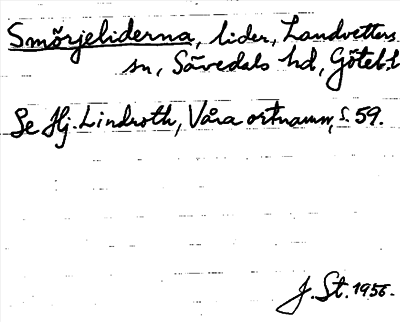 Smörjeliderna, lider, Landvetters
sn, Sävedals hd, Göteb.l
Se Hj. Lindroth, Våra ortnamn, s. 59.
J. St. 1956.